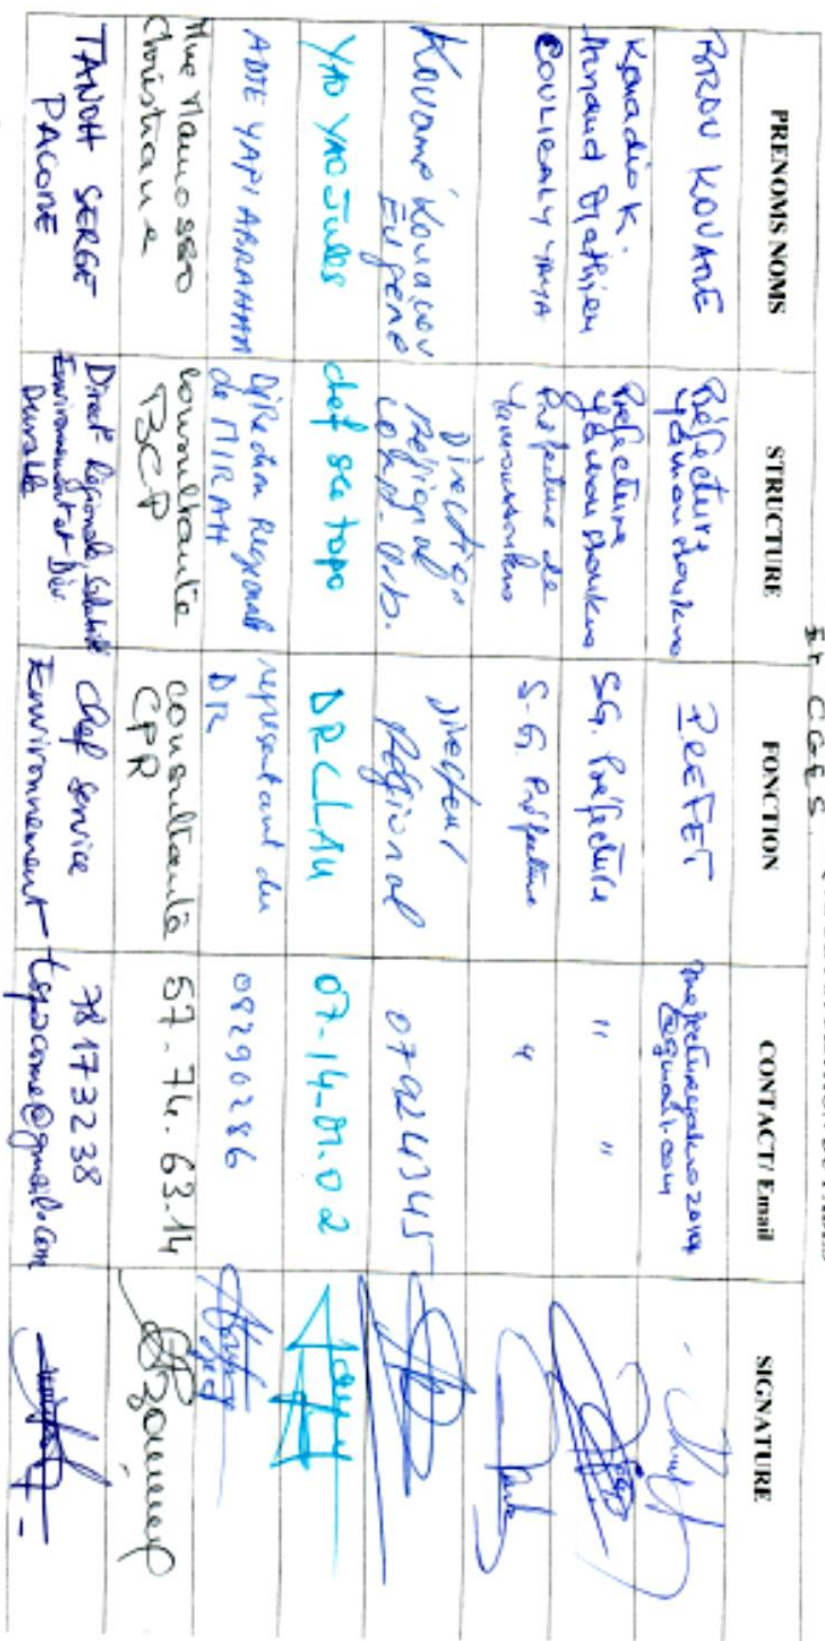 Et CGES.
PRENOMS NOMS STRUCTURE FONCTION CONTACT/ Email SIGNATURE
BROU KOUAME Préfecture Yamoussoukro PREFET @gmail.com
Kouadio K. Arnaud Mathieu Préfecture Yamoussoukro SG. Préfecture " "
COULIBALY YAYA Préfecture de Yamoussoukro S.G. Préfecture "
Kouamé Kouakou Eugene Direction Régional Directeur Régional
YAO YAO Jules chef sce topo DRCLAU 07-14-01.02
ADTE YAPI ABRAHAM Direction Regionale de MIRAH représentant du DR 08290286
Mme Christiane consultante BCP consultante CPR 57.74.63.14
TANOH SERGE PACOME Direct° Régionale Environnement et Dév Durable Chef Service Environnement 78173238 tspacome@gmail.com